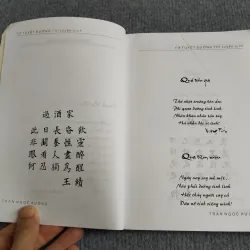 TỨ TUYỆT ĐƯỜNG THI
過酒家
此日長昏飲
非關養性靈
眼看人盡醉
何忍獨為醒
王績
TRẦN NGỌC HƯỞNG
TỨ TUYỆT ĐƯỜNG THI
Quá tửu gia
Thử nhật trường hôn ẩm,
Phi quan dưỡng tính linh
Nhãn khan nhân tận túy
Hà nhẫn độc vi tinh!
Vương Tích
Ngày nay say mê mệt
Nào phải dưỡng tính tình
Thấy chúng người say cả
TRẦN NGỌC HƯỞNG